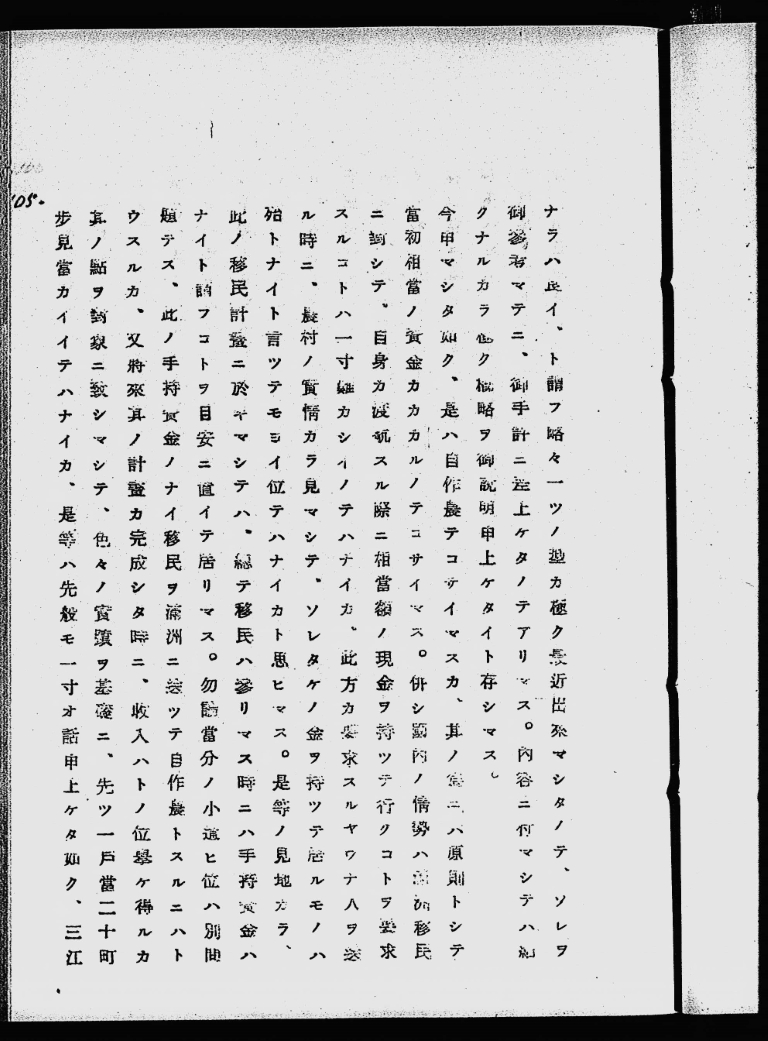 ナラハ良イ、ト謂フ略々一ツノ型カ極ク最近出來マシタノテ、ソレヲ
御參考マテニ、御手許ニ差上ケタノテアリマス。內容ニ付マシテハ細
クナルカラ極ク槪略ヲ御說明申上ケタイト存シマス。
今申マシタ如ク、是ハ自作農テコサイマスカ、其ノ爲ニハ原則トシテ
當初相當ノ資金カカカルノテコサイマス。併シ國內ノ情勢ハ滿洲移民
ニ對シテ、自身カ渡航スル際ニ相當額ノ現金ヲ持ツテ行クコトヲ要求
スルコトハ一寸難カシイノテハナイカ、此方カ要求スルヤウナ人ヲ送
ル時ニ、農村ノ實情カラ見マシテ、ソレタケノ金ヲ持ツテ居ルモノハ
殆トナイト言ツテモヨイ位テハナイカト思ヒマス。是等ノ見地カラ、
此ノ移民計畫ニ於キマシテハ、總テ移民ハ參リマス時ニハ手持資金ハ
ナイト謂フコトヲ目安ニ置イテ居リマス。勿論當分ノ小遣ヒ位ハ別問
題テス、此ノ手持資金ノナイ移民ヲ滿洲ニ送ツテ自作農トスルニハト
ウスルカ、又將來其ノ計畫カ完成シタ時ニ、收入ハトノ位擧ケ得ルカ
其ノ點ヲ對象ニ致シマシテ、色々ノ實績ヲ基礎ニ、先ツ一戶當二十町
步見當カイイテハナイカ、是等ハ先般モ一寸オ話申上ケタ如ク、三江
105.